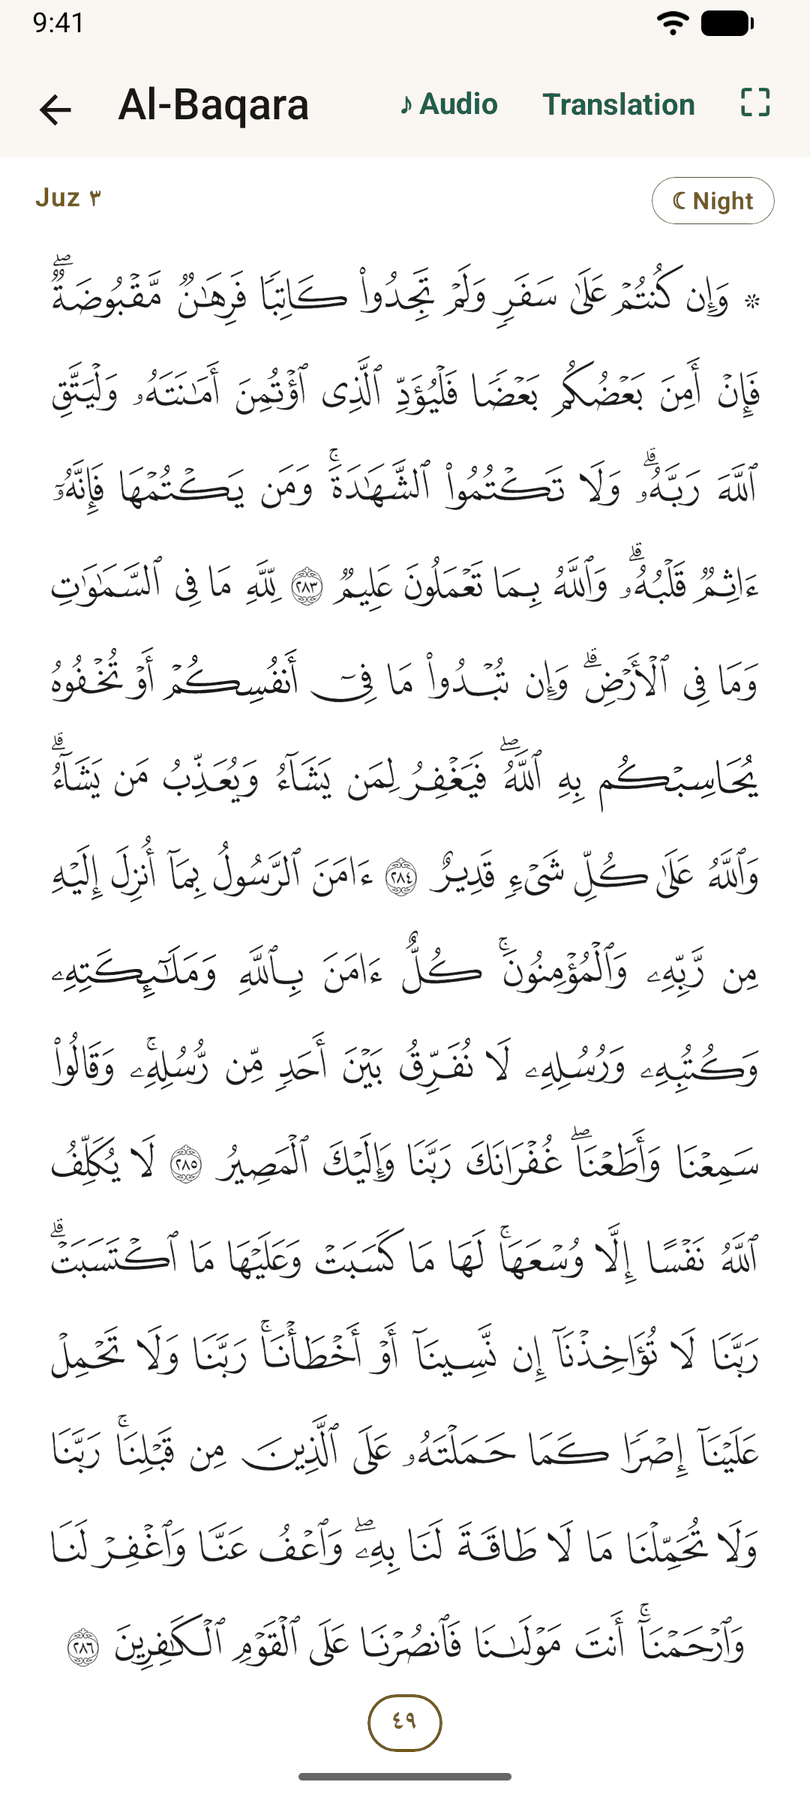 9:41
Al-Baqara ♪ Audio Translation
Juz ٣ ☾ Night
۞ وَإِن كُنتُمْ عَلَىٰ سَفَرٍ وَلَمْ تَجِدُوا۟ كَاتِبًا فَرِهَـٰنٌ مَّقْبُوضَةٌ ۖ
فَإِنْ أَمِنَ بَعْضُكُم بَعْضًا فَلْيُؤَدِّ ٱلَّذِى ٱؤْتُمِنَ أَمَـٰنَتَهُۥ وَلْيَتَّقِ
ٱللَّهَ رَبَّهُۥ ۗ وَلَا تَكْتُمُوا۟ ٱلشَّهَـٰدَةَ ۚ وَمَن يَكْتُمْهَا فَإِنَّهُۥٓ
ءَاثِمٌ قَلْبُهُۥ ۗ وَٱللَّهُ بِمَا تَعْمَلُونَ عَلِيمٌ ٢٨٣ لِّلَّهِ مَا فِى ٱلسَّمَـٰوَٰتِ
وَمَا فِى ٱلْأَرْضِ ۗ وَإِن تُبْدُوا۟ مَا فِىٓ أَنفُسِكُمْ أَوْ تُخْفُوهُ
يُحَاسِبْكُم بِهِ ٱللَّهُ ۖ فَيَغْفِرُ لِمَن يَشَآءُ وَيُعَذِّبُ مَن يَشَآءُ ۗ
وَٱللَّهُ عَلَىٰ كُلِّ شَىْءٍ قَدِيرٌ ٢٨٤ ءَامَنَ ٱلرَّسُولُ بِمَآ أُنزِلَ إِلَيْهِ
مِن رَّبِّهِۦ وَٱلْمُؤْمِنُونَ ۚ كُلٌّ ءَامَنَ بِٱللَّهِ وَمَلَـٰٓئِكَتِهِۦ
وَكُتُبِهِۦ وَرُسُلِهِۦ لَا نُفَرِّقُ بَيْنَ أَحَدٍ مِّن رُّسُلِهِۦ ۚ وَقَالُوا۟
سَمِعْنَا وَأَطَعْنَا ۖ غُفْرَانَكَ رَبَّنَا وَإِلَيْكَ ٱلْمَصِيرُ ٢٨٥ لَا يُكَلِّفُ
ٱللَّهُ نَفْسًا إِلَّا وُسْعَهَا ۚ لَهَا مَا كَسَبَتْ وَعَلَيْهَا مَا ٱكْتَسَبَتْ ۗ
رَبَّنَا لَا تُؤَاخِذْنَآ إِن نَّسِينَآ أَوْ أَخْطَأْنَا ۚ رَبَّنَا وَلَا تَحْمِلْ
عَلَيْنَآ إِصْرًا كَمَا حَمَلْتَهُۥ عَلَى ٱلَّذِينَ مِن قَبْلِنَا ۚ رَبَّنَا
وَلَا تُحَمِّلْنَا مَا لَا طَاقَةَ لَنَا بِهِۦ ۖ وَٱعْفُ عَنَّا وَٱغْفِرْ لَنَا
وَٱرْحَمْنَآ ۚ أَنتَ مَوْلَىٰنَا فَٱنصُرْنَا عَلَى ٱلْقَوْمِ ٱلْكَـٰفِرِينَ ٢٨٦
٤٩